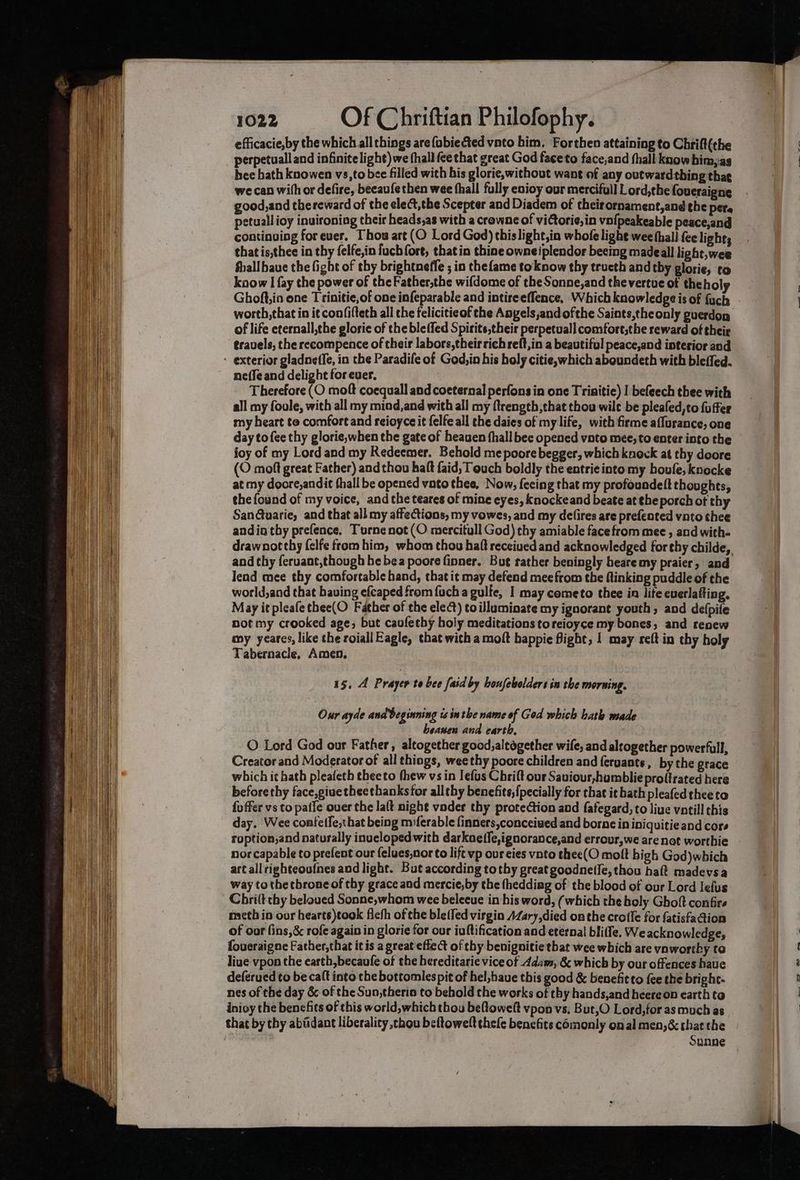 1022 Of Chriſtian Philoſophy.
efficacie,by the which all things are ſubiected vnto him. For then attaining to Chriſt(the
perpetuall and infinite light)we ſhall ſee that great God face to face,and ſhall know him,as
hee hath knowen vs,to bee filled with his glorie,without want of any outward thing that
we can wiſh or deſire, becauſe then wee ſhall fully enioy our mercifull Lord,the ſoueraigne
good,and the reward of the elect,the Scepter and Diadem of their ornament,and the per-
petuall ioy inuironing their heads,as with a crowne of victorie,in vnſpeakeable peace,and
continuing for euer. Thou art (O Lord God) this light,in whoſe light wee ſhall ſee light,
that is,thee in thy ſelfe,in ſuch ſort, that in thine owne ſplendor beeing made all light,wee
ſhall haue the ſight of thy brightneſſe ; in the ſame to know thy trueth and thy glorie, to
know I ſay the power of the Father,the wiſdome of the Sonne,and the vertue of the holy
Ghoſt,in one Trinitie,of one inſeparable and intire eſſence. Which knowledge is of ſuch
worth,that in it conſiſteth all the felicitie of the Angels,and of the Saints,the only guerdon
of life eternall,the glorie of the bleſſed Spirits,their perpetuall comfort,the reward of their
trauels, the recompence of their labors,their rich reſt,in a beautiful peace,and interior and
exterior gladneſſe, in the Paradiſe of God,in his holy citie,which aboundeth with bleſſed-
neſſe and delight for euer.
Therefore (O moſt coequall and coeternal perſons in one Trinitie) I beſeech thee with
all my ſoule, with all my mind,and with all my ſtrength,that thou wilt be pleaſed,to ſuffer
my heart to comfort and reioyce it ſelfe all the daies of my life, with firme aſſurance, one
day to ſee thy glorie,when the gate of heauen ſhall bee opened vnto mee, to enter into the
ioy of my Lord and my Redeemer. Behold me poore begger, which knock at thy doore
(O moſt great Father) and thou haſt ſaid, Touch boldly the entrie into my houſe, knocke
at my doore,and it ſhall be opened vnto thee. Now, ſeeing that my profoundeſt thoughts,
the ſound of my voice, and the teares of mine eyes, knocke and beate at the porch of thy
Sanctuarie, and that all my affections, my vowes, and my deſires are preſented vnto thee
and in thy preſence. Turne not (O mercifull God) thy amiable face from mee , and with-
draw not thy ſelfe from him, whom thou haſt receiued and acknowledged for thy childe,
and thy ſeruant,though he be a poore ſinner. But rather beningly heare my praier, and
lend mee thy comfortable hand, that it may defend mee from the ſtinking puddle of the
world,and that hauing eſcaped from ſuch a gulfe, I may come to thee in life euerlaſting.
May it pleaſe thee(O Father of the elect) to illuminate my ignorant youth, and deſpiſe
not my crooked age, but cauſe thy holy meditations to reioyce my bones, and renew
my yeares, like the roiall Eagle, that with a moſt happie flight, I may reſt in thy holy
Tabernacle, Amen.
15. A Prayer to bee ſaid by houſeholders in the morning.
Our ayde and beginning is in the name of God which hath made
heauen and earth.
O Lord God our Father, altogether good,altogether wiſe, and altogether powerfull,
Creator and Moderator of all things, wee thy poore children and ſeruants, by the grace
which it hath pleaſeth thee to ſhew vs in Ieſus Chriſt our Sauiour,humblie proſtrated here
before thy face,giue thee thanks for all thy benefits,ſpecially for that it hath pleaſed thee to
ſuffer vs to paſſe ouer the laſt night vnder thy protection and ſafegard, to liue vntill this
day. Wee confeſſe,that being miſerable ſinners,conceiued and borne in iniquitie and cor-
ruption,and naturally inueloped with darkneſſe,ignorance,and errour,we are not worthie
nor capable to preſent our ſelues,nor to lift vp our eies vnto thee(O moſt high God)which
art all righteouſnes and light. But according to thy great goodneſſe, thou haſt made vs a
way to the throne of thy grace and mercie,by the ſhedding of the blood of our Lord Ieſus
Chriſt thy beloued Sonne,whom wee beleeue in his word, (which the holy Ghoſt confir-
meth in our hearts)took fleſh of the bleſſed virgin Mary,died on the croſſe for ſatisfaction
of our ſins,& roſe again in glorie for our iuſtification and eternal bliſſe. We acknowledge,
ſoueraigne Father,that it is a great effect of thy benignitie that wee which are vnworthy to
liue vpon the earth,becauſe of the hereditarie vice of Adam, & which by our offences haue
deſerued to be caſt into the bottomles pit of hel,haue this good & benefit to ſee the bright-
nes of the day & of the Sun,therin to behold the works of thy hands,and heere on earth to
inioy the benefits of this world,which thou beſtoweſt vpon vs. But,O Lord,for as much as
that by thy abūdant liberality,thou beſtoweſt theſe benefits cōmonly on al men,& that the
Sunne